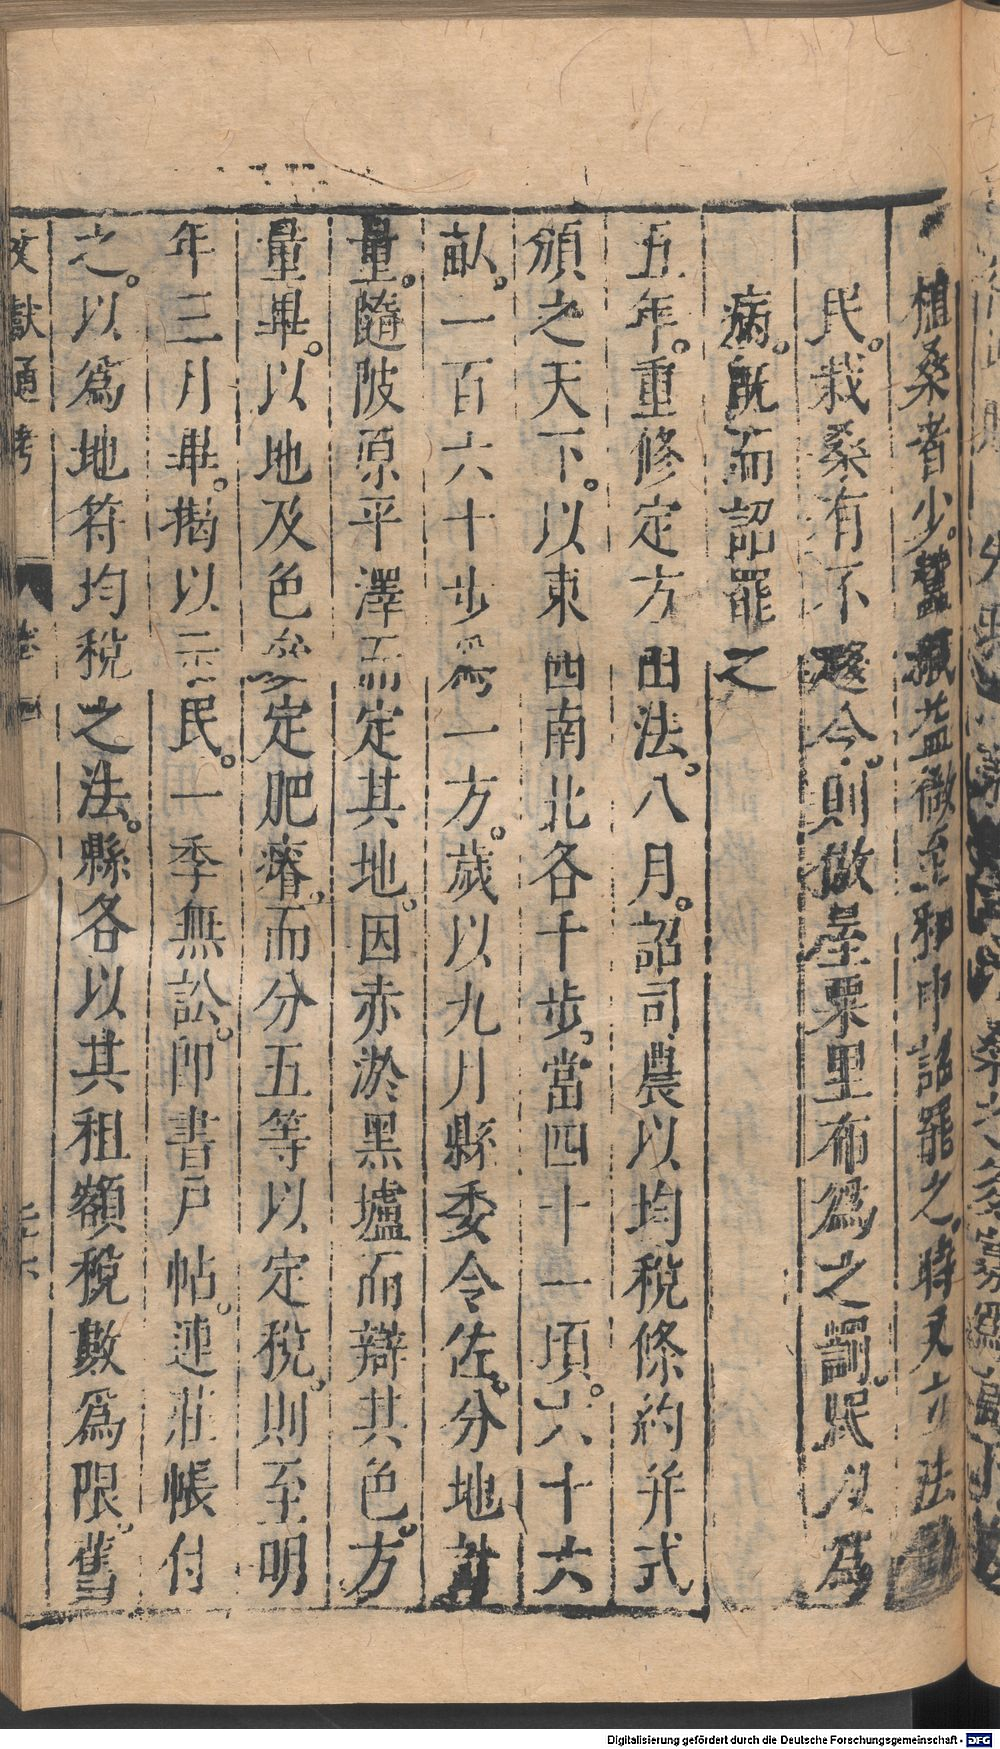 植桑者少蠶織益微至和中詔罷之時又立法
民。栽桑有不趨令則倣屋粟里布爲之罰。民以爲
病。既而詔罷之
五年。重修定方田法。八月。詔司農以均稅條約并式
頒之天下。以東西南北各千步當四十一頃。六十六
畝。一百六十步爲一方。歲以九月縣委令佐。分地計
量。隨陂原平澤而定其地。因赤淤黑壚而辯其色。方
量畢。以地及色參定肥瘠。而分五等以定稅。則至明
年三月畢。揭以示民。一季無訟。卽書戶帖。連莊帳付
之。以爲地符均稅之法。縣各以其租額稅數爲限。舊
文獻通考 卷四
Digitalisierung gefördert durch die Deutsche Forschungsgemeinschaft - DFG